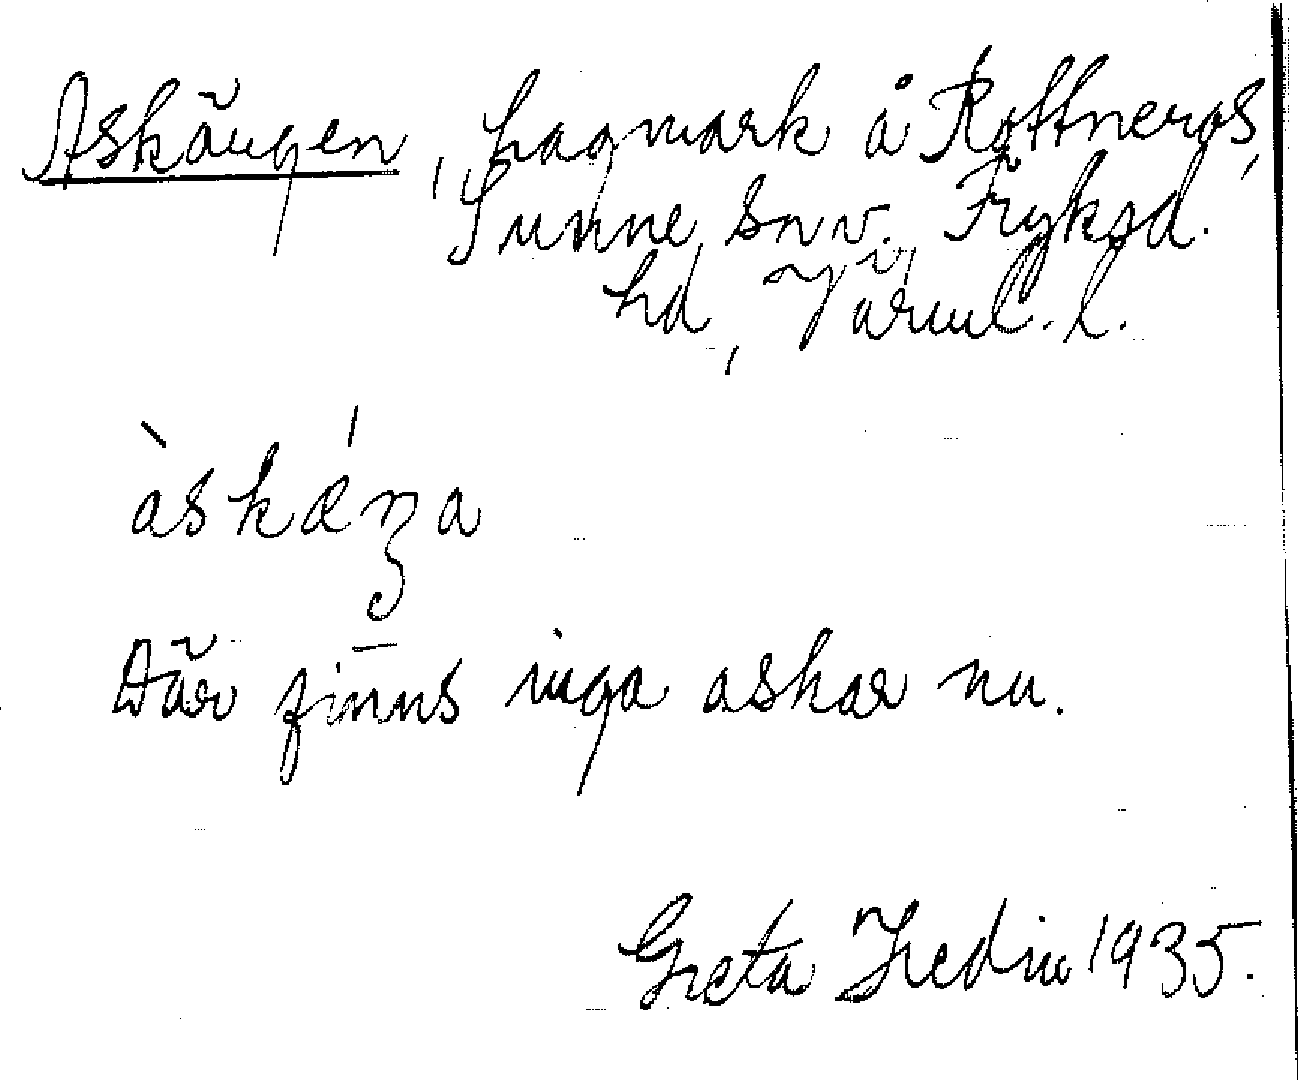 Askängen, hagmark å Rottneros,
Sunne sn v. Fryksd.
hd, Värml. l.
àskǽŋa
Där finns inga askar nu.
Greta Hedin 1935.